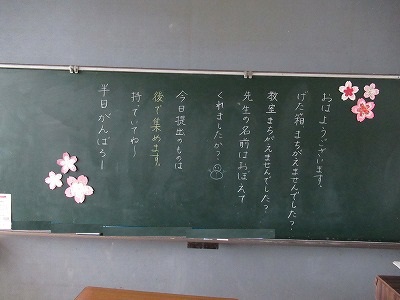 おはようございます。
げた箱 まちがえませんでした?
教室まちがえませんでした?
先生の名前はおぼえて
くれましたか?
今日提出のものは
後で集めます。
持っていてね〜
半日がんばろー